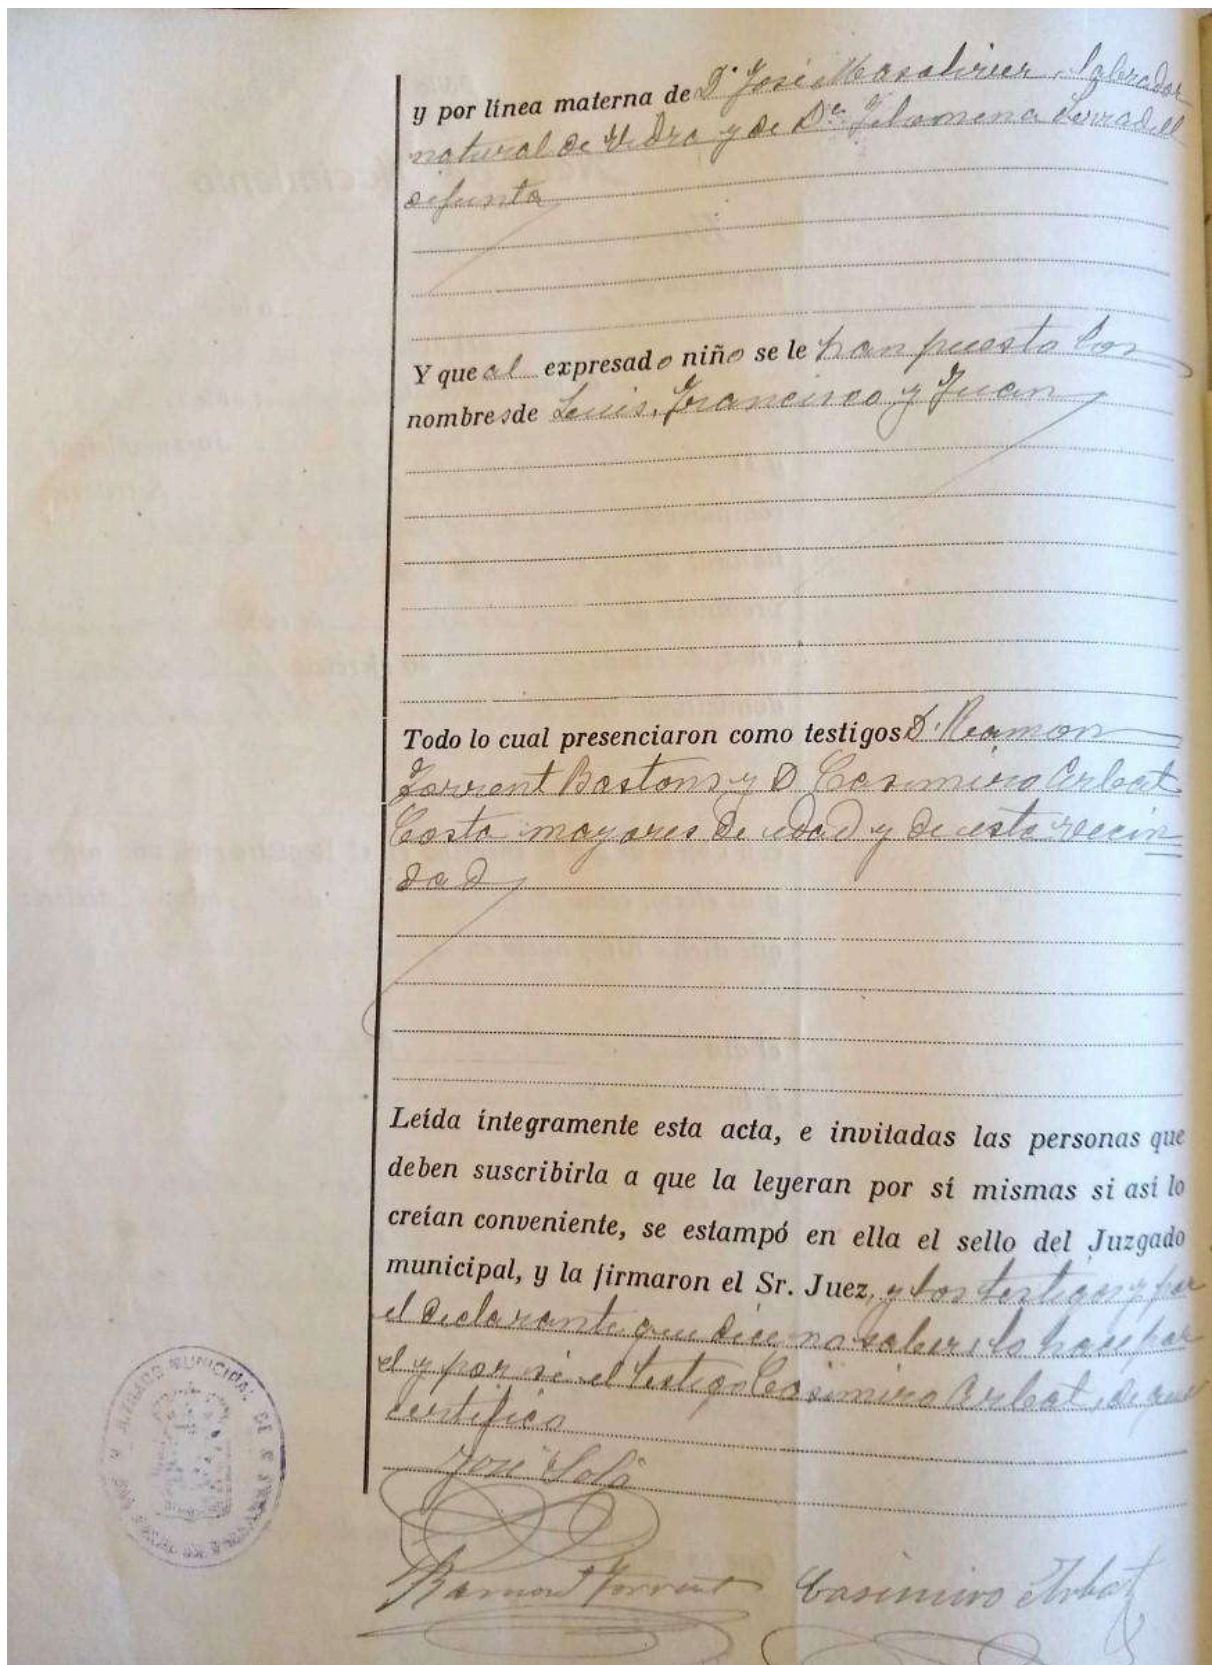 y por línea materna de D. José Masoliver, labrador
natural de Vidra y de Dª Filomena Serradell
difunta
Y que al expresado niño se le han puesto los
nombres de Luis, Francisco y Juan
Todo lo cual presenciaron como testigos D. Ramon
Torrent Bastons y D Casimiro Arbat
Costa mayores de edad y de esta vecin
dad
Leída íntegramente esta acta, e invitadas las personas que
deben suscribirla a que la leyeran por sí mismas si así lo
creían conveniente, se estampó en ella el sello del Juzgado
municipal, y la firmaron el Sr. Juez, y los testigos y por
el declarante que dice no saber, lo hase por
el y por si el testigo Casimiro Arbat, de que
certifico
José Solá
Ramon Torrent Casimiro Arbat
JUZGADO MUNICIPAL DE